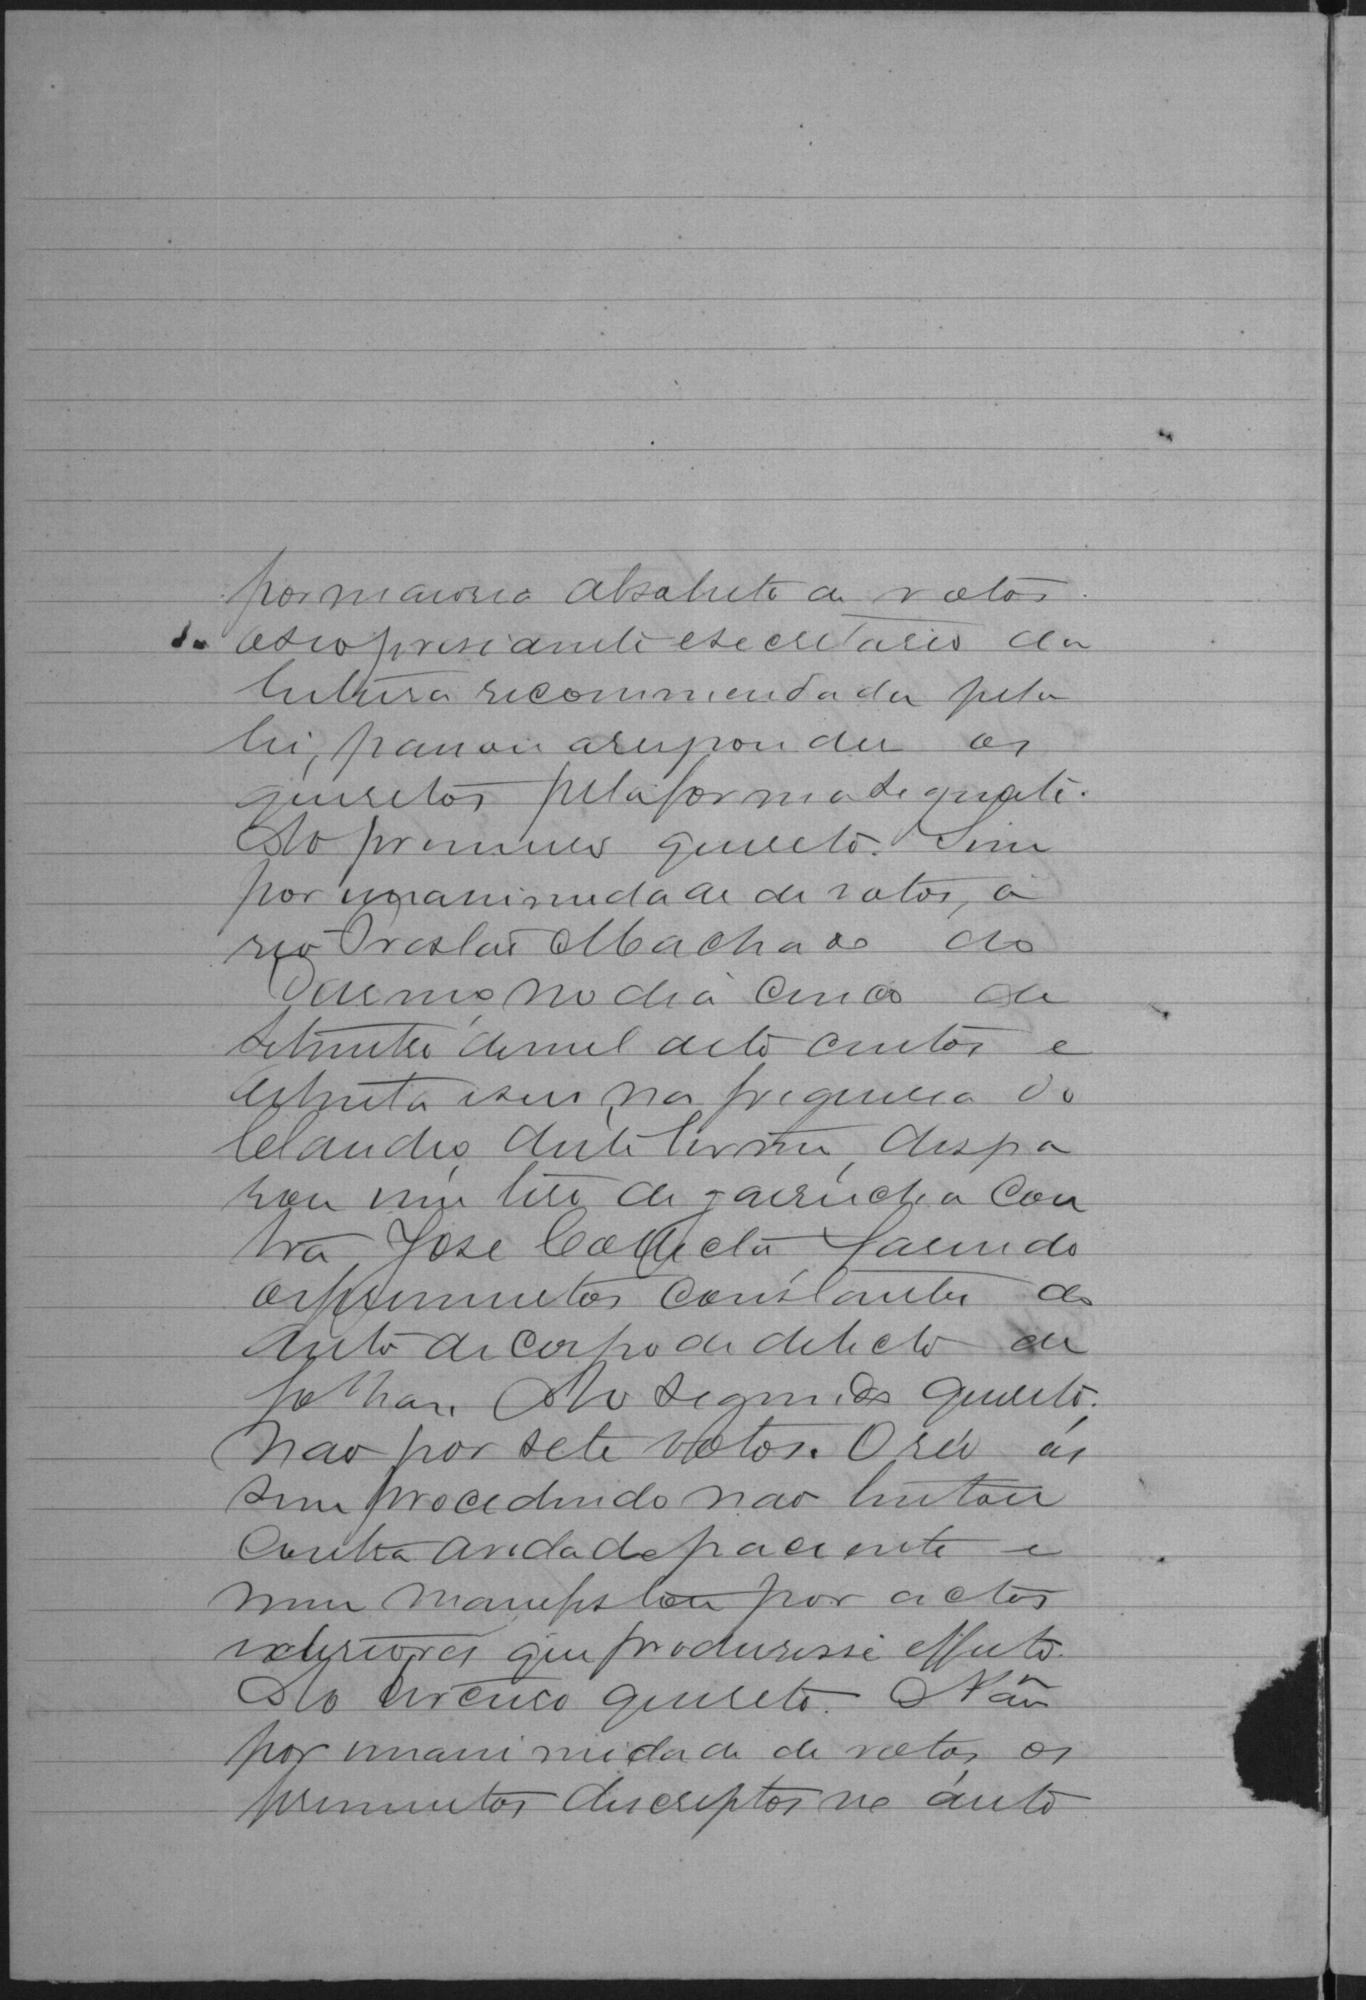 por maioria absoluta de votos.
o seo presidente e secretario da
leitura recommendada pela
lei, passou a responder os
quesitos pela forma seguente.
Ao primeiro quesito. Sim
por unanimidade de votos, o
reo Machado do
no dia cinco de
setembro de mil oito centos e
oitenta e seis, na freguesia do
Claudio, deste termo, dispa
rou um tiro de garrucha con
tra José fasendo
os ferimentos constantes do
auto de corpo de delicto de
folhas. Ao segundo quesito.
Nao por sete votos. O réo as
sim procedendo nao tentou
contra a vida do paciente e
nem manifestou por actos
exteriores que produsisse effeito.
Ao terceiro quesito. Não
por unanimidade de votos, os
ferimentos descriptos no auto